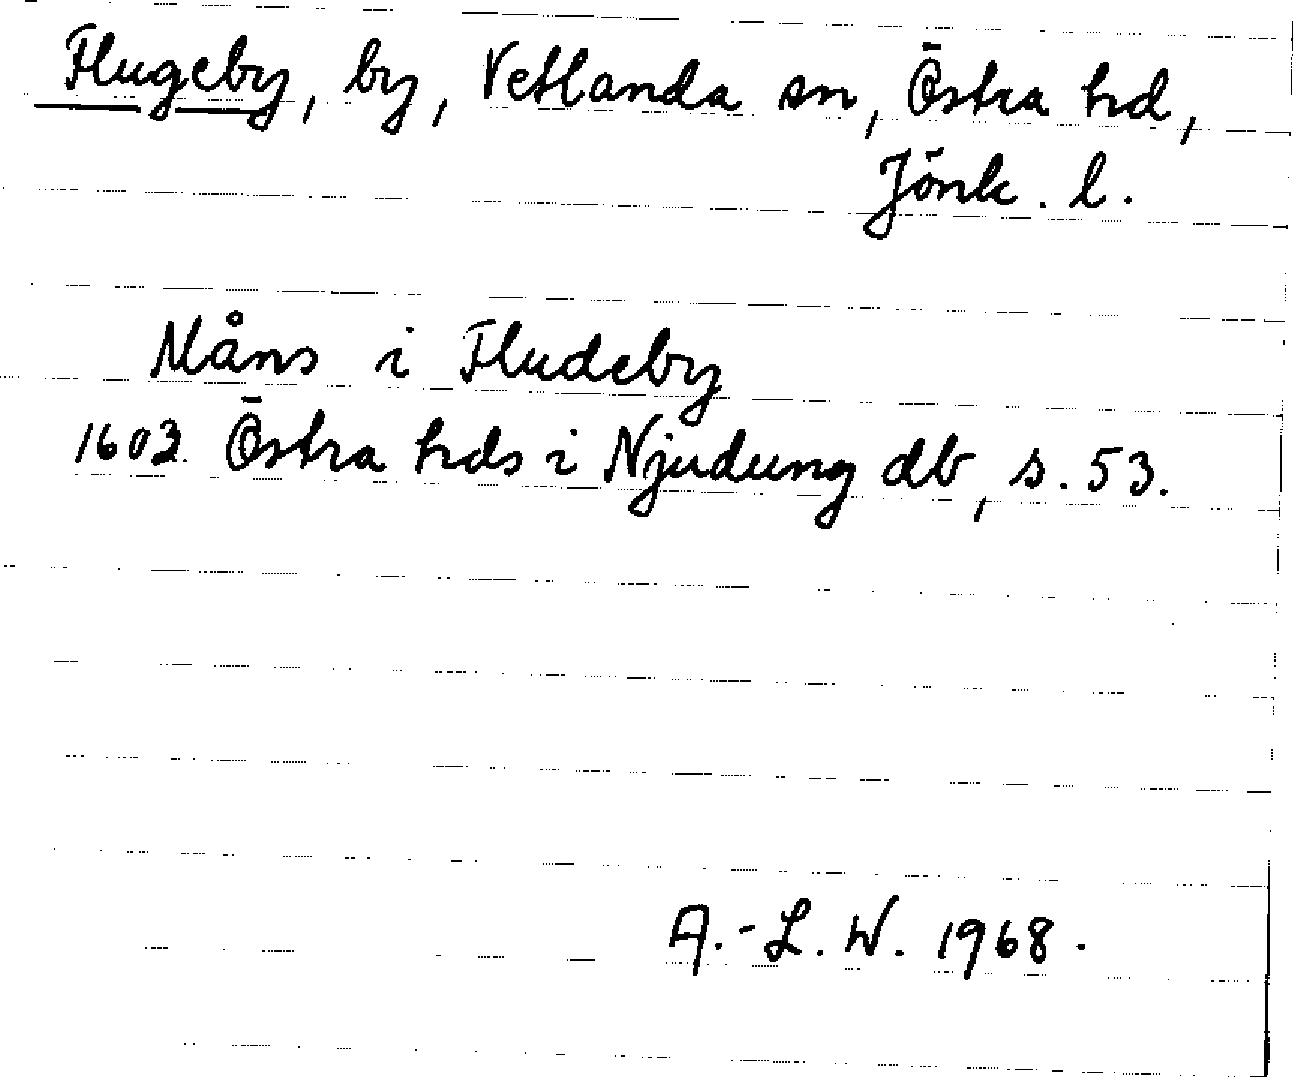 Flugeby, by, Vetlanda sn, Östra hd,
Jönk. l.
Måns i Fludeby
1603 Östra hds i Njudung db, s. 53.
A.-L. W. 1968.